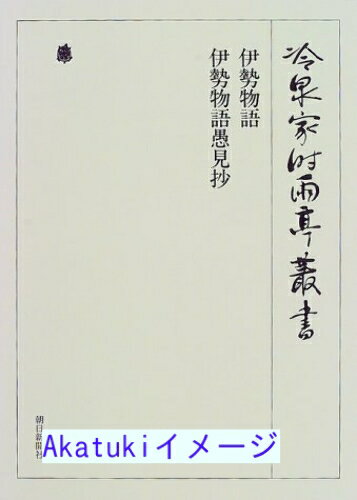 冷泉家時雨亭叢書
伊勢物語
伊勢物語愚見抄
朝日新聞社
Akatukiイメージ